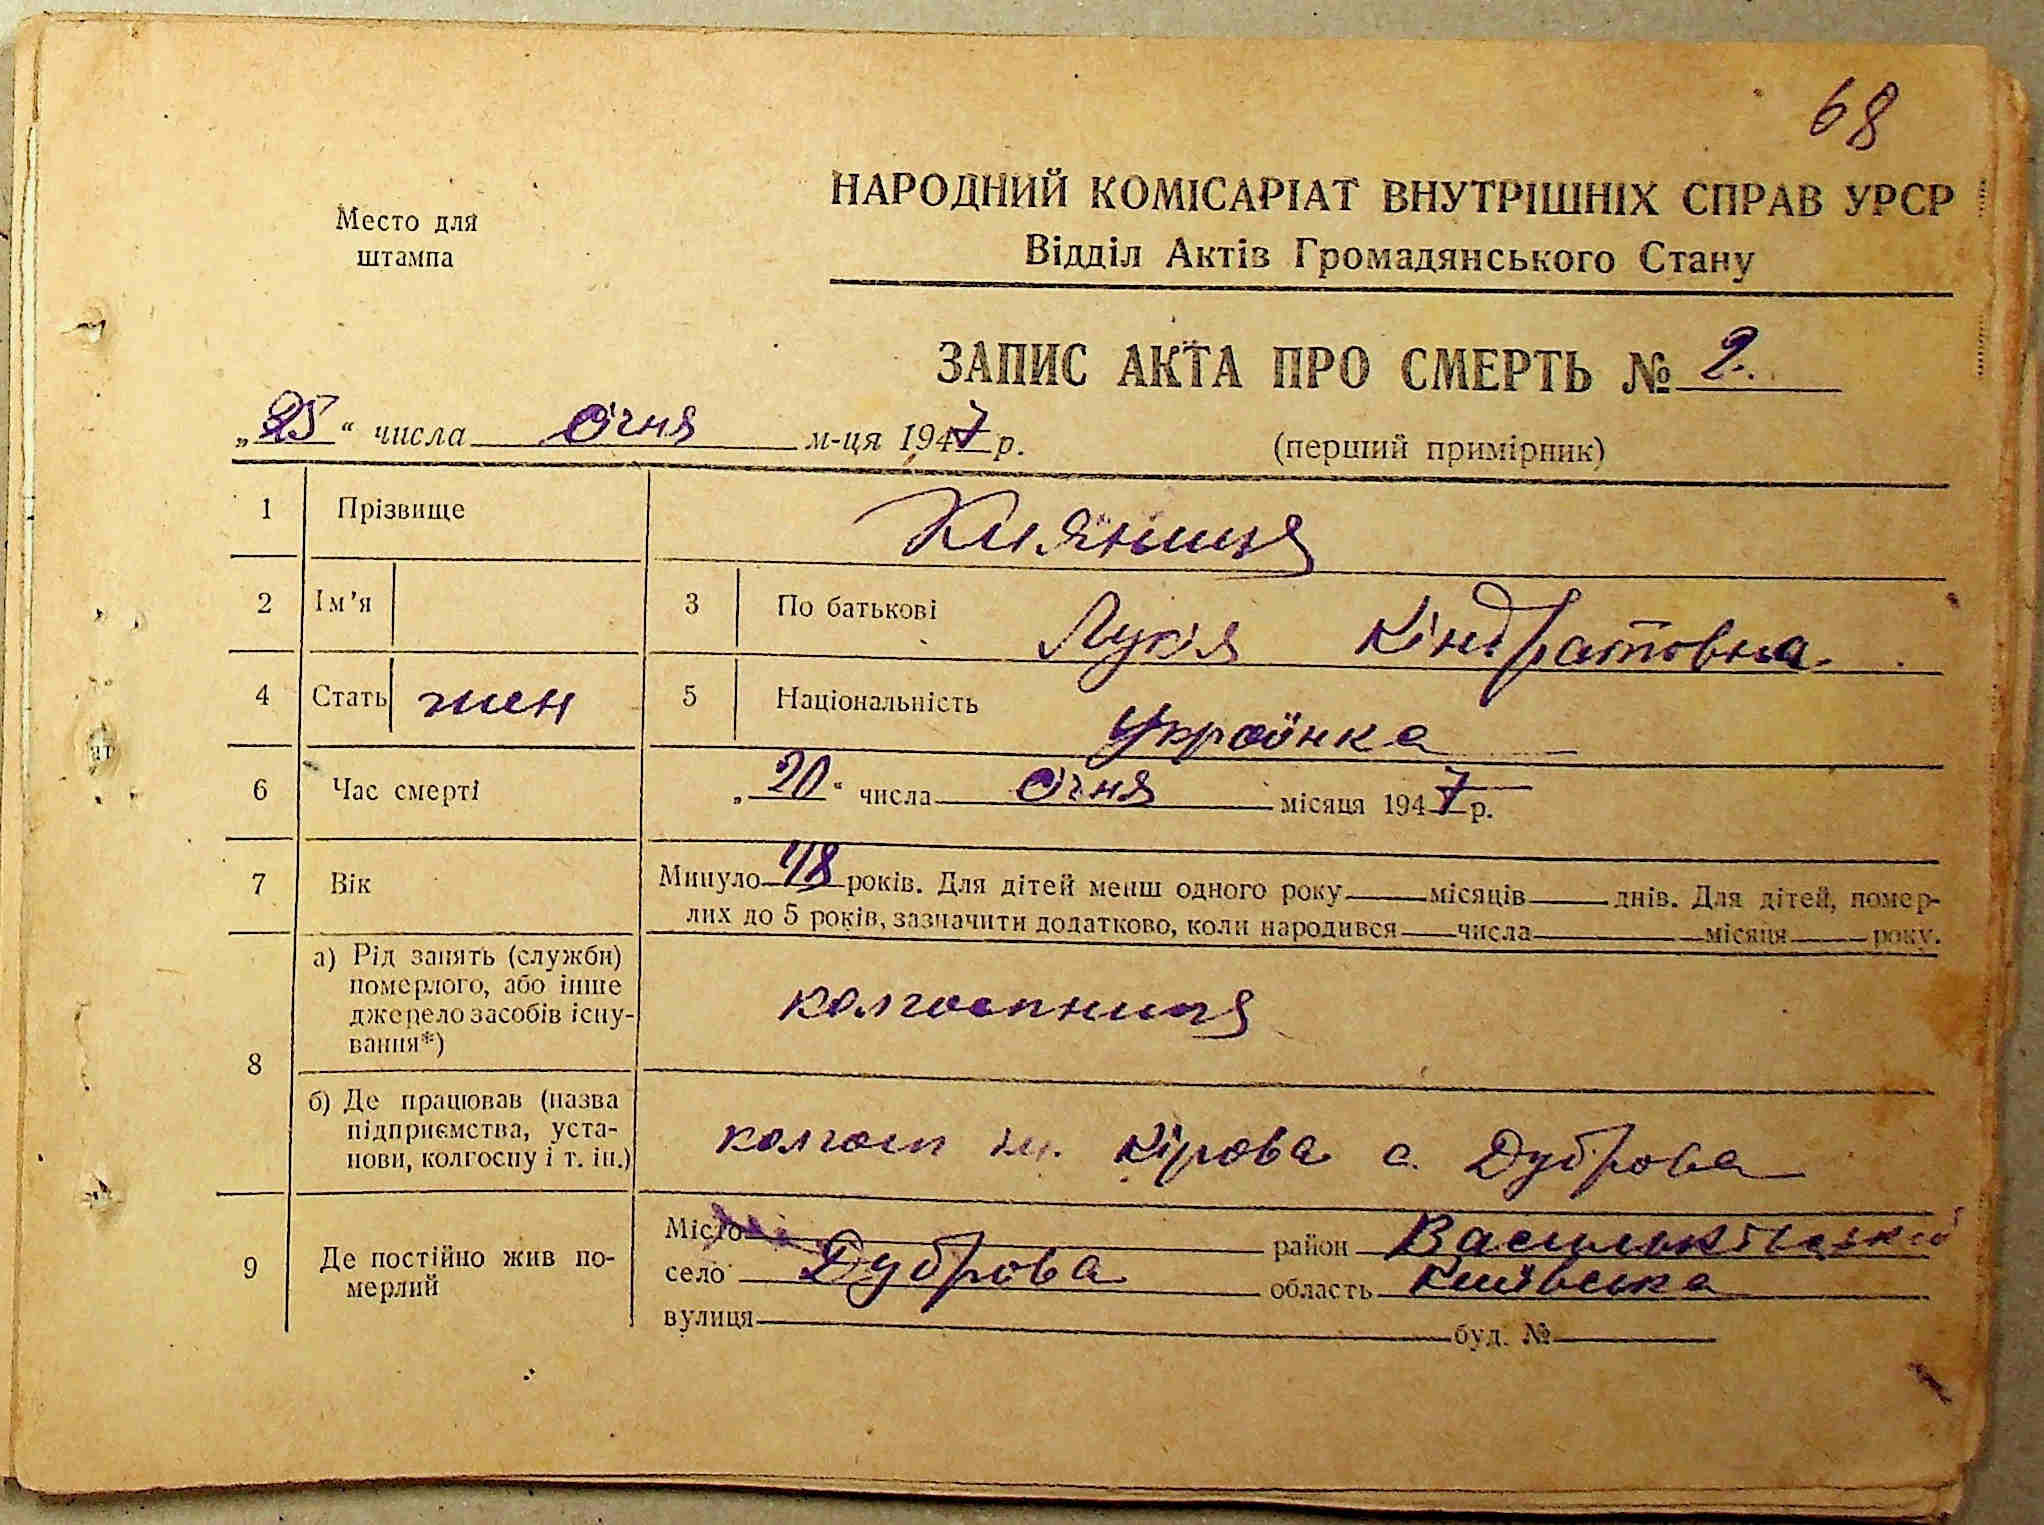 68
Место для
штампа
НАРОДНИЙ КОМІСАРІАТ ВНУТРІШНІХ СПРАВ УРСР
Відділ Актів Громадянського Стану
ЗАПИС АКТА ПРО СМЕРТЬ № 2.
„25“ числа січня м-ця 1947 р.
(перший примірник)
1 Прізвище Кияниця
2 Ім'я 3 По батькові Лукія Кіндратовна
4 Стать жен 5 Національність Українка
6 Час смерті „20“ числа січня місяця 1947 р.
7 Вік Минуло 48 років. Для дітей менш одного року місяців днів. Для дітей, помер-
лих до 5 років, зазначити додатково, коли народився числа місяця року.
8 а) Рід занять (служби)
померлого, або інше
джерело засобів існу-
вання*)
колгоспниця
б) Де працював (назва
підприємства, уста-
нови, колгоспу і т. ін.)
колгосп ім. Кірова с. Дуброва
9 Де постійно жив по-
мерлий
Місто район Васильківський
село Дуброва область Київська
вулиця буд. №